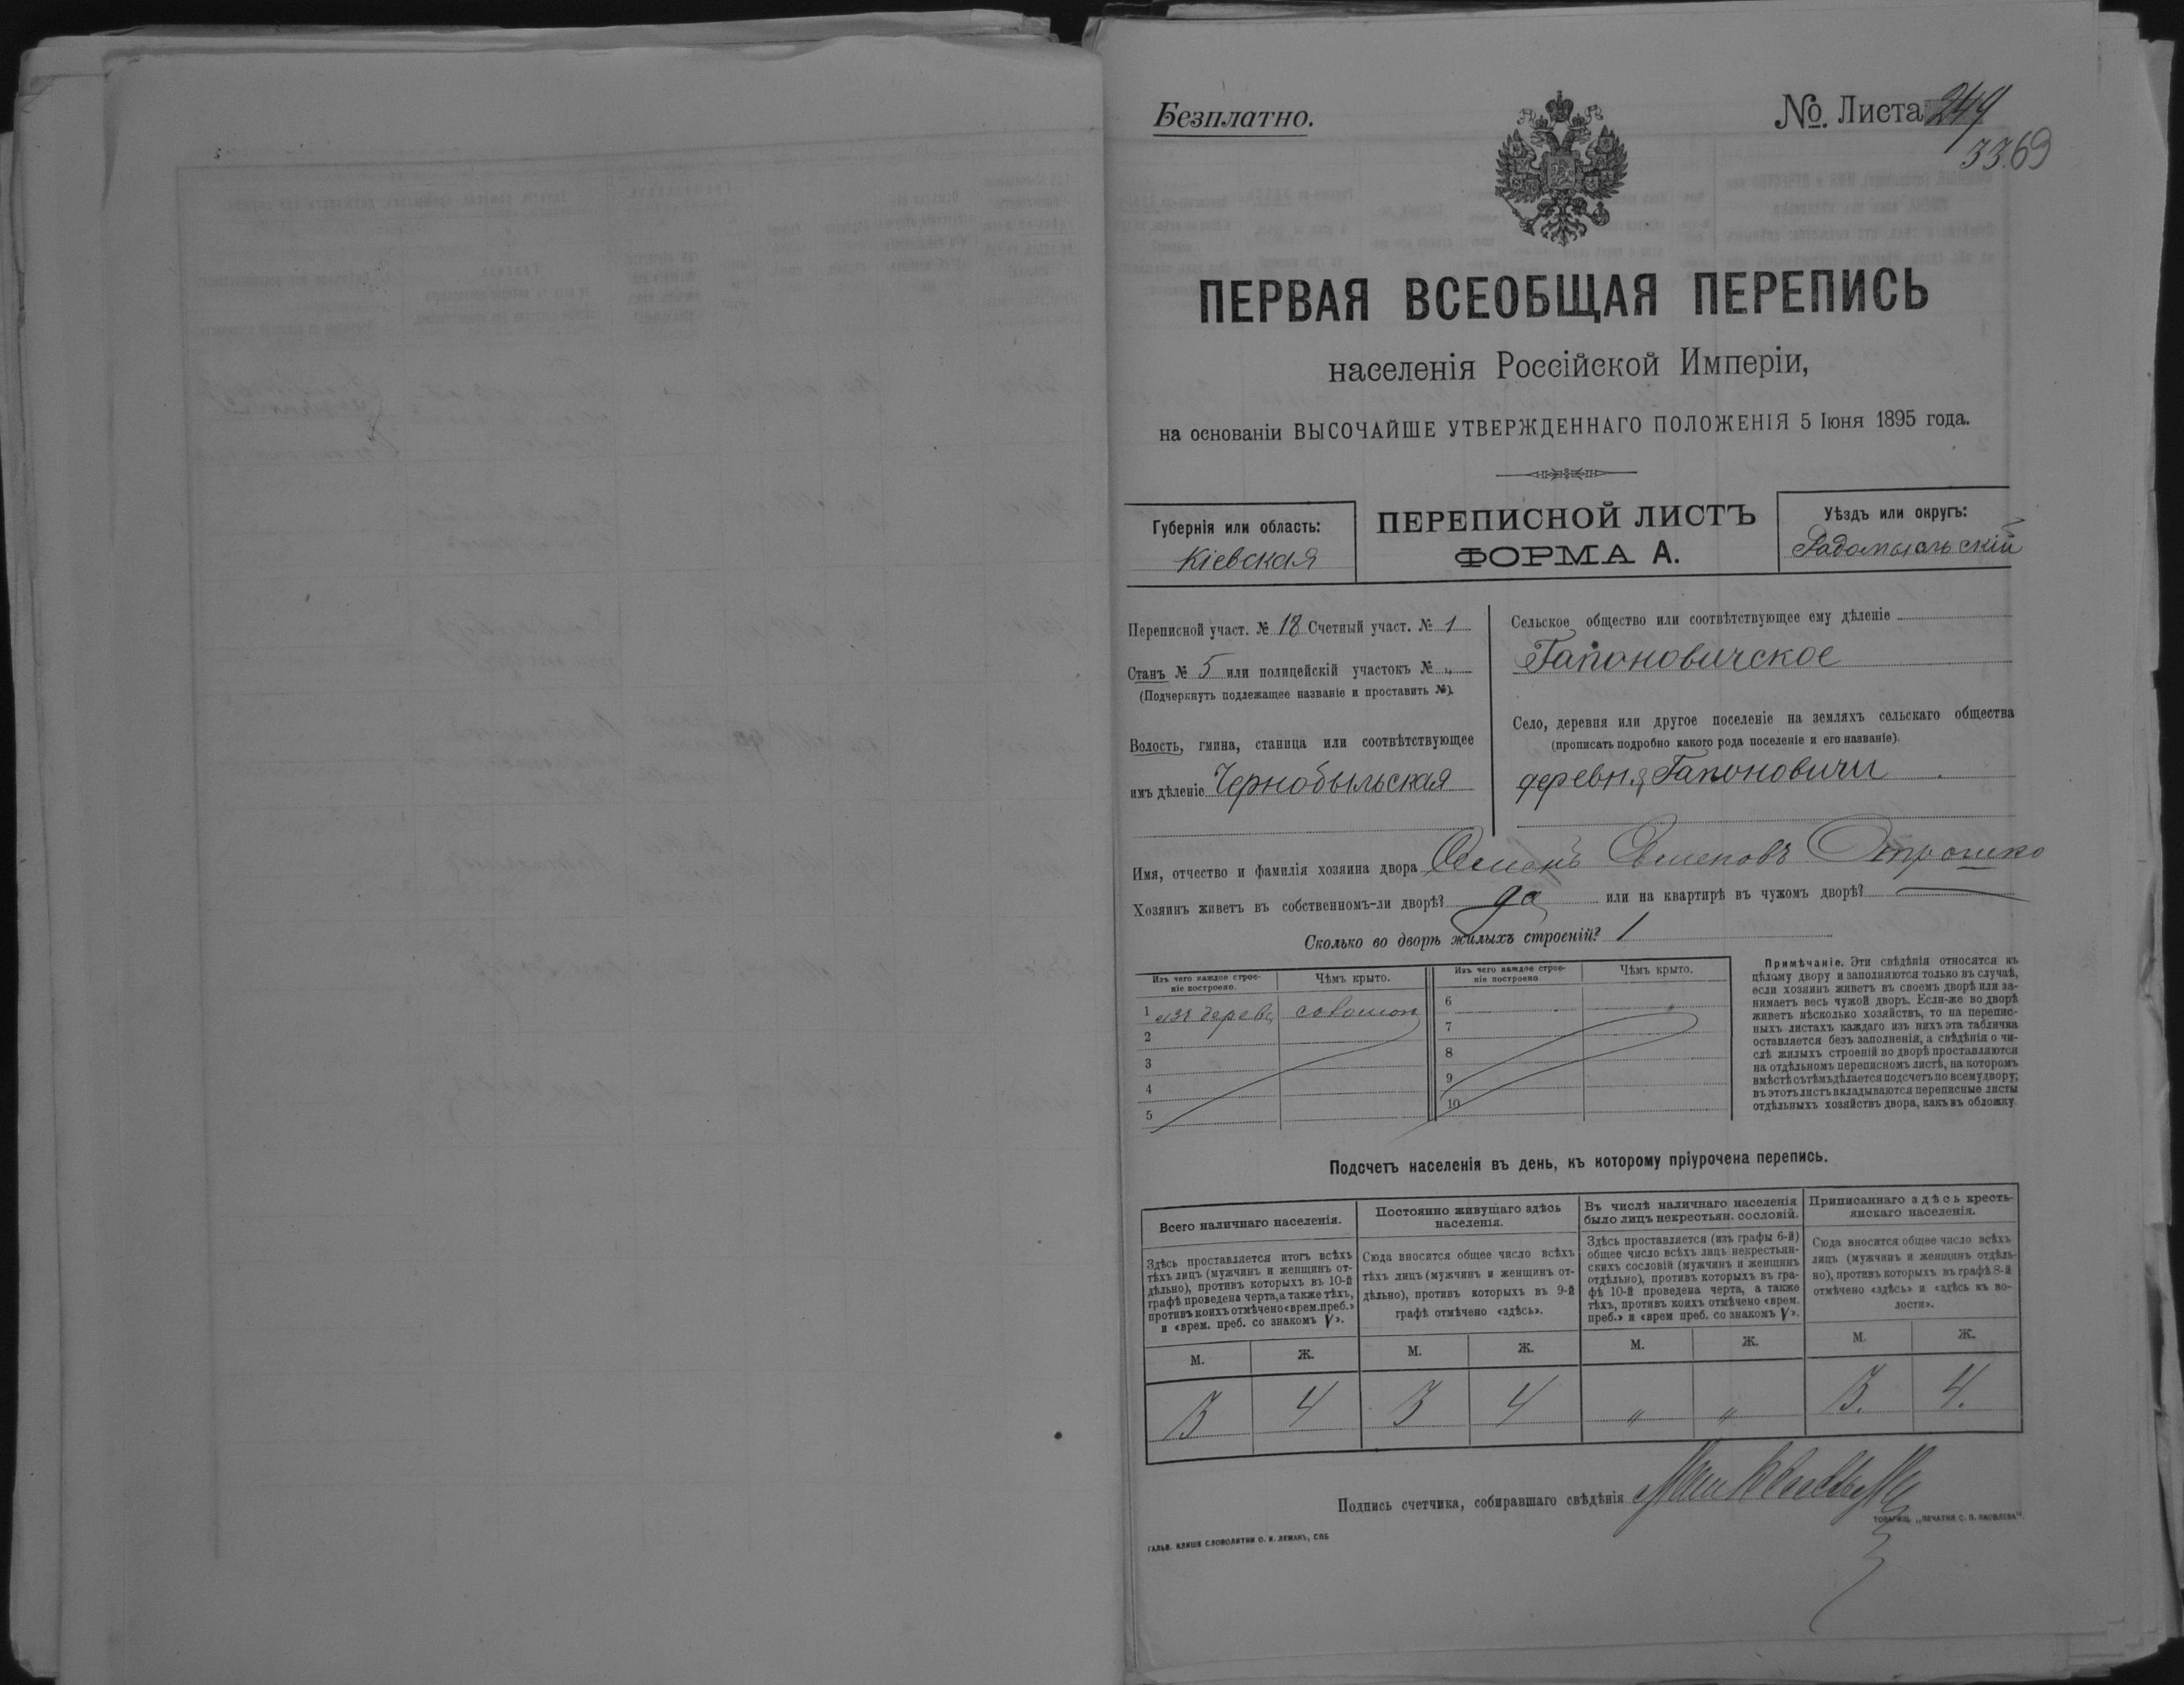 Безплатно.
№ Листа 249
3369
ПЕРВАЯ ВСЕОБЩАЯ ПЕРЕПИСЬ
населенія Россійской Имперіи,
на основаніи ВЫСОЧАЙШЕ УТВЕРЖДЕННАГО ПОЛОЖЕНІЯ 5 Іюня 1895 года.
Губернія или область:
Кіевская
ПЕРЕПИСНОЙ ЛИСТЪ
ФОРМА А.
Уѣздъ или округъ:
Радомысльскій
Переписной участ. № 18 Счетный участ. № 1
Станъ № 5 или полицейскій участокъ № „
(Подчеркнуть подлежащее названіе и проставить №).
Волость, гмина, станица или соотвѣтствующее
имъ дѣленіе Чернобыльская
Сельское общество или соотвѣтствующее ему дѣленіе
Гапоновичское
Село, деревня или другое поселеніе на земляхъ сельскаго общества
(прописать подробно какого рода поселеніе и его названіе).
деревня Гапоновичи
Имя, отчество и фамилія хозяина двора Семенъ Семеновъ
Хозяинъ живетъ въ собственномъ-ли дворѣ? да или на квартирѣ въ чужомъ дворѣ?
Сколько во дворѣ жилыхъ строеній? 1
Изъ чего каждое строе-
ніе построено.
Чѣмъ крыто.
Изъ чего каждое строе-
ніе построено
Чѣмъ крыто.
1 изъ дерева соломой
2
3
4
5
6
7
8
9
10
Примѣчаніе. Эти свѣдѣнія относятся къ
цѣлому двору и заполняются только въ случаѣ,
если хозяинъ живетъ въ своемъ дворѣ или за-
нимаетъ весь чужой дворъ. Если-же во дворѣ
живетъ нѣсколько хозяйствъ, то на перепис-
ныхъ листахъ каждаго изъ нихъ эта табличка
оставляется безъ заполненія, а свѣдѣнія о чи-
слѣ жилыхъ строеній во дворѣ проставляются
на отдѣльномъ переписномъ листѣ, на которомъ
вмѣстѣ съ тѣмъ дѣлается подсчетъ по всему двору;
въ этотъ листъ вкладываются переписные листы
отдѣльныхъ хозяйствъ двора, какъ въ обложку.
Подсчетъ населенія въ день, къ которому пріурочена перепись.
Всего наличнаго населенія.
Здѣсь проставляется итогъ всѣхъ
тѣхъ лицъ (мужчинъ и женщинъ от-
дѣльно), противъ которыхъ въ 10-й
графѣ проведена черта, а также тѣхъ,
противъ коихъ отмѣчено «врем. преб.»
и «врем. преб. со знакомъ V».
Постоянно живущаго здѣсь
населенія.
Сюда вносится общее число всѣхъ
тѣхъ лицъ (мужчинъ и женщинъ от-
дѣльно), противъ которыхъ въ 9-й
графѣ отмѣчено «здѣсь».
Въ числѣ наличнаго населенія
было лицъ некрестьян. сословій.
Здѣсь проставляется (изъ графы 6-й)
общее число всѣхъ лицъ некрестьян-
скихъ сословій (мужчинъ и женщинъ
отдѣльно), противъ которыхъ въ гра-
фѣ 10-й проведена черта, а также
тѣхъ, противъ коихъ отмѣчено «врем.
преб.» и «врем преб. со знакомъ V».
Приписаннаго здѣсь кресть-
янскаго населенія.
Сюда вносится общее число всѣхъ
лицъ (мужчинъ и женщинъ отдѣль-
но), противъ которыхъ въ графѣ 8-й
отмѣчено «здѣсь» и «здѣсь къ во-
лости».
М. Ж. М. Ж. М. Ж. М. Ж.
3 4 3 4 „ „ 3. 4.
Подпись счетчика, собиравшаго свѣдѣнія
ГАЛЬВ. КЛИШЕ СЛОВОЛИТНИ О. И. ЛЕМАНЪ, СПБ
ТОВАРИЩ. „ПЕЧАТНЯ С. П. ЯКОВЛЕВА“.